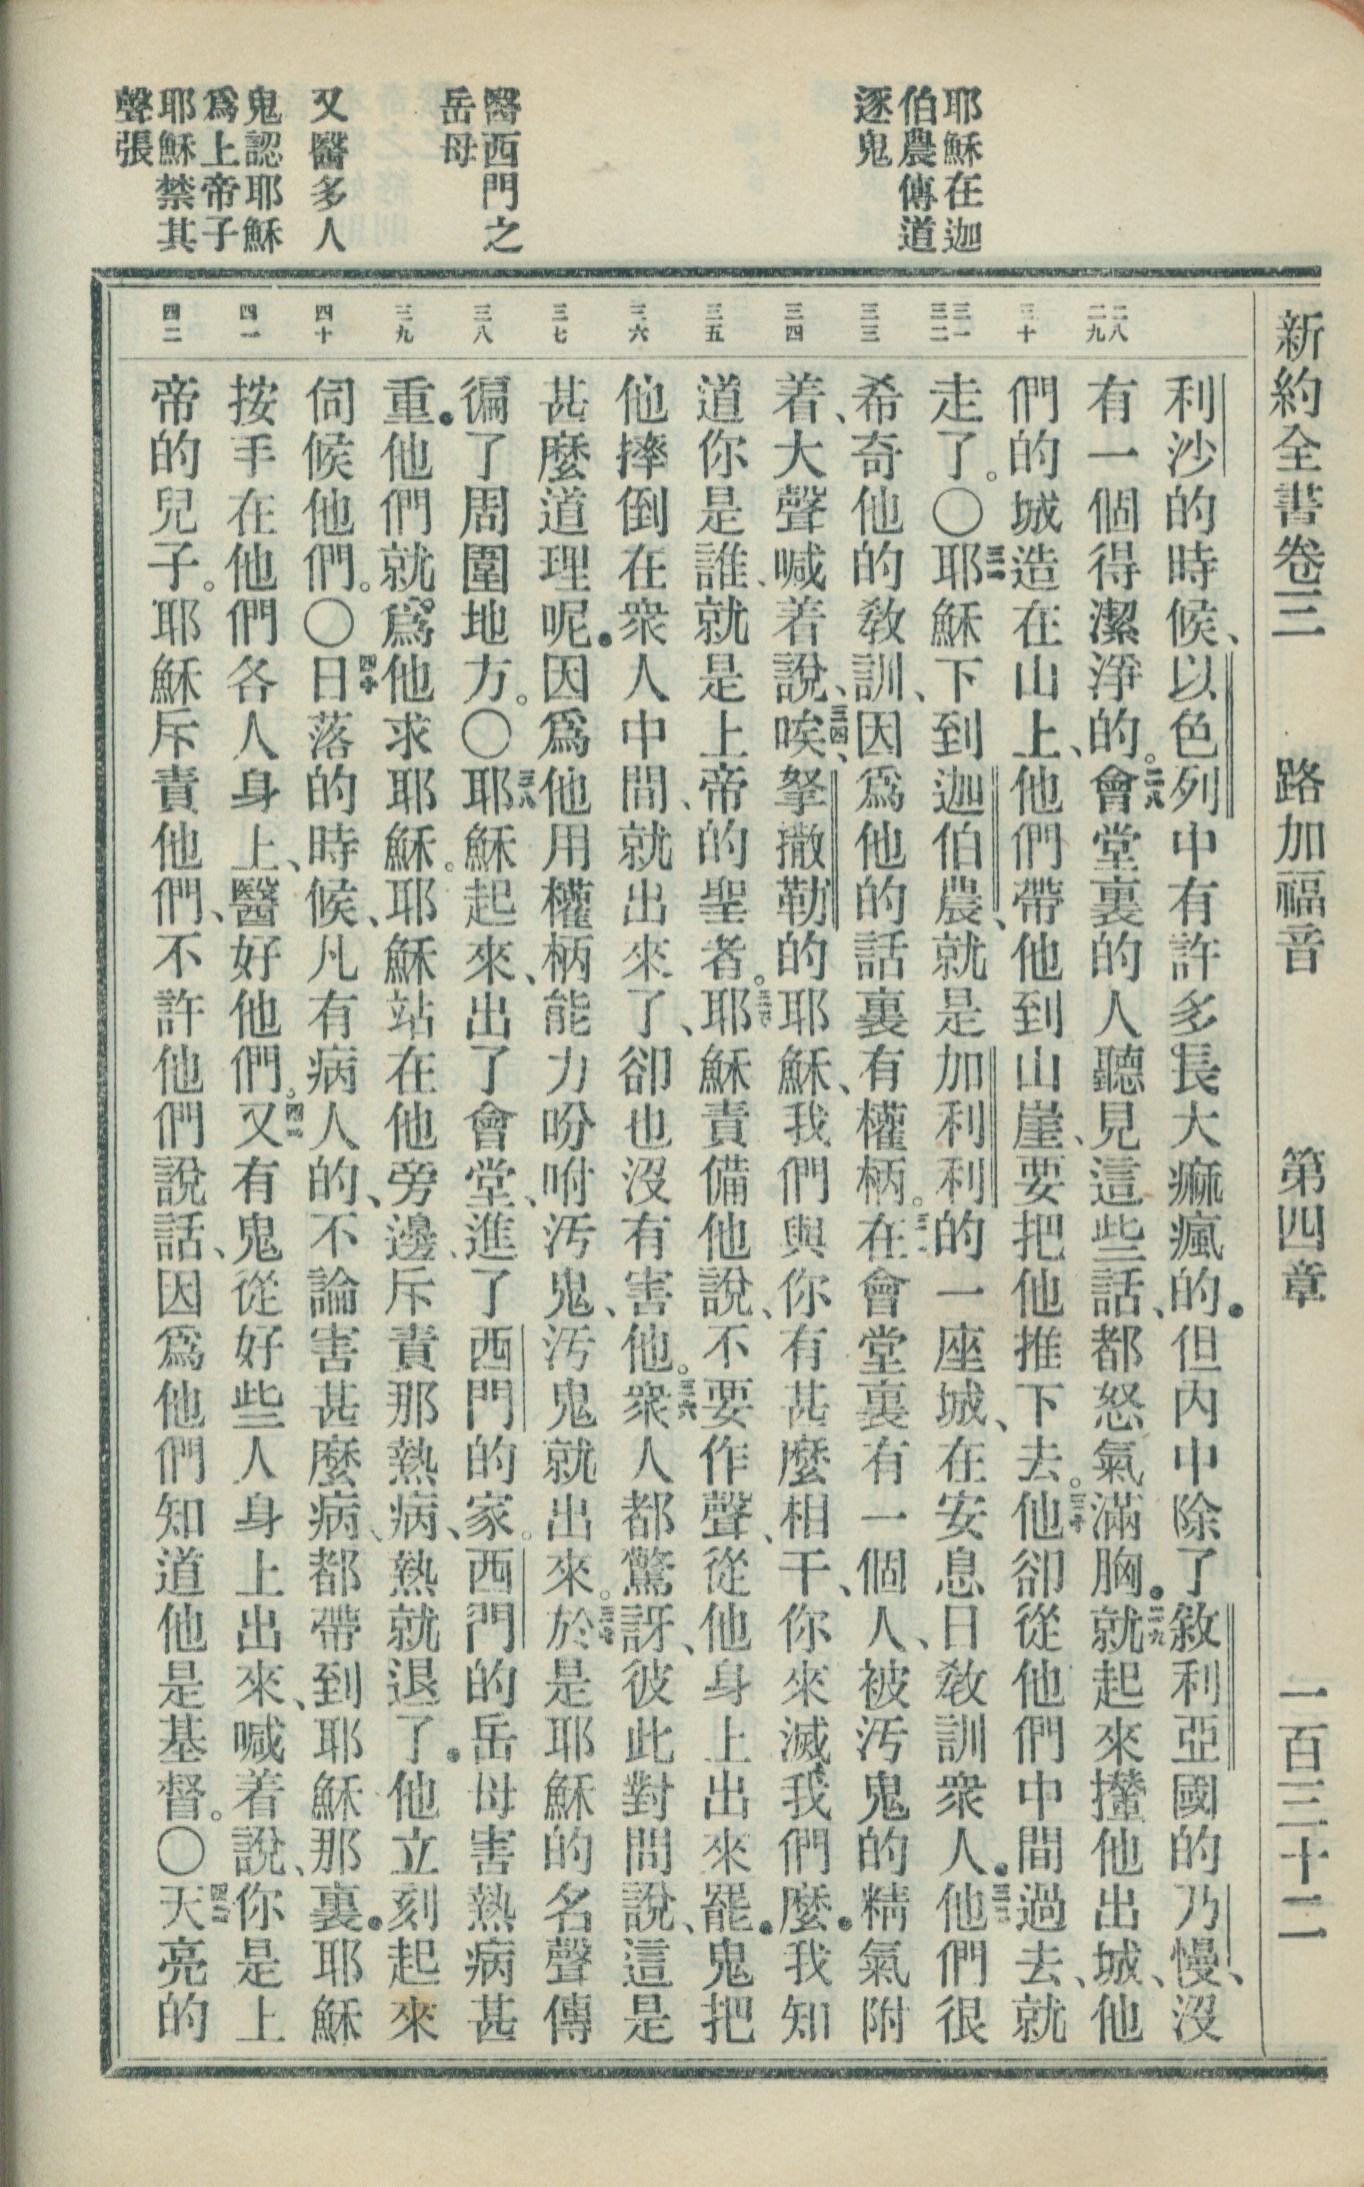 新約全書卷三　路加福音　第四章　一百三十二
耶穌在迦
伯農傳道
逐鬼
醫西門之
岳母
又醫多人
鬼認耶穌
爲上帝子
耶穌禁其
聲張
二八
二九
三十
三一
三二
三三
三四
三五
三六
三七
三八
三九
四十
四一
四二
利沙的時候、以色列中有許多長大痲瘋的．但內中除了敘利亞國的乃慢、沒
有一個得潔淨的。二八會堂裏的人聽見這些話、都怒氣滿胸．二九就起來攆他出城、他
們的城造在山上、他們帶他到山崖、要把他推下去。三十他卻從他們中間過去、就
走了。〇三一耶穌下到迦伯農、就是加利利的一座城、在安息日教訓衆人．三二他們很
希奇他的教訓、因爲他的話裏有權柄。三三在會堂裏有一個人、被汚鬼的精氣附
着、大聲喊着說、三四唉、拏撒勒的耶穌、我們與你有甚麼相干、你來滅我們麼．我知
道你是誰、就是上帝的聖者。三五耶穌責備他說、不要作聲、從他身上出來罷．鬼把
他摔倒在衆人中間、就出來了、卻也沒有害他。三六衆人都驚訝、彼此對問說、這是
甚麼道理呢．因爲他用權柄能力吩咐汚鬼、汚鬼就出來。三七於是耶穌的名聲傳
徧了周圍地方。〇三八耶穌起來、出了會堂、進了西門的家。西門的岳母害熱病甚
重．他們就爲他求耶穌。三九耶穌站在他旁邊、斥責那熱病、熱就退了．他立刻起來
伺候他們。〇四十日落的時候、凡有病人的、不論害甚麼病、都帶到耶穌那裏．耶穌
按手在他們各人身上、醫好他們。四一又有鬼從好些人身上出來、喊着說、你是上
帝的兒子。耶穌斥責他們、不許他們說話、因爲他們知道他是基督。〇四二天亮的